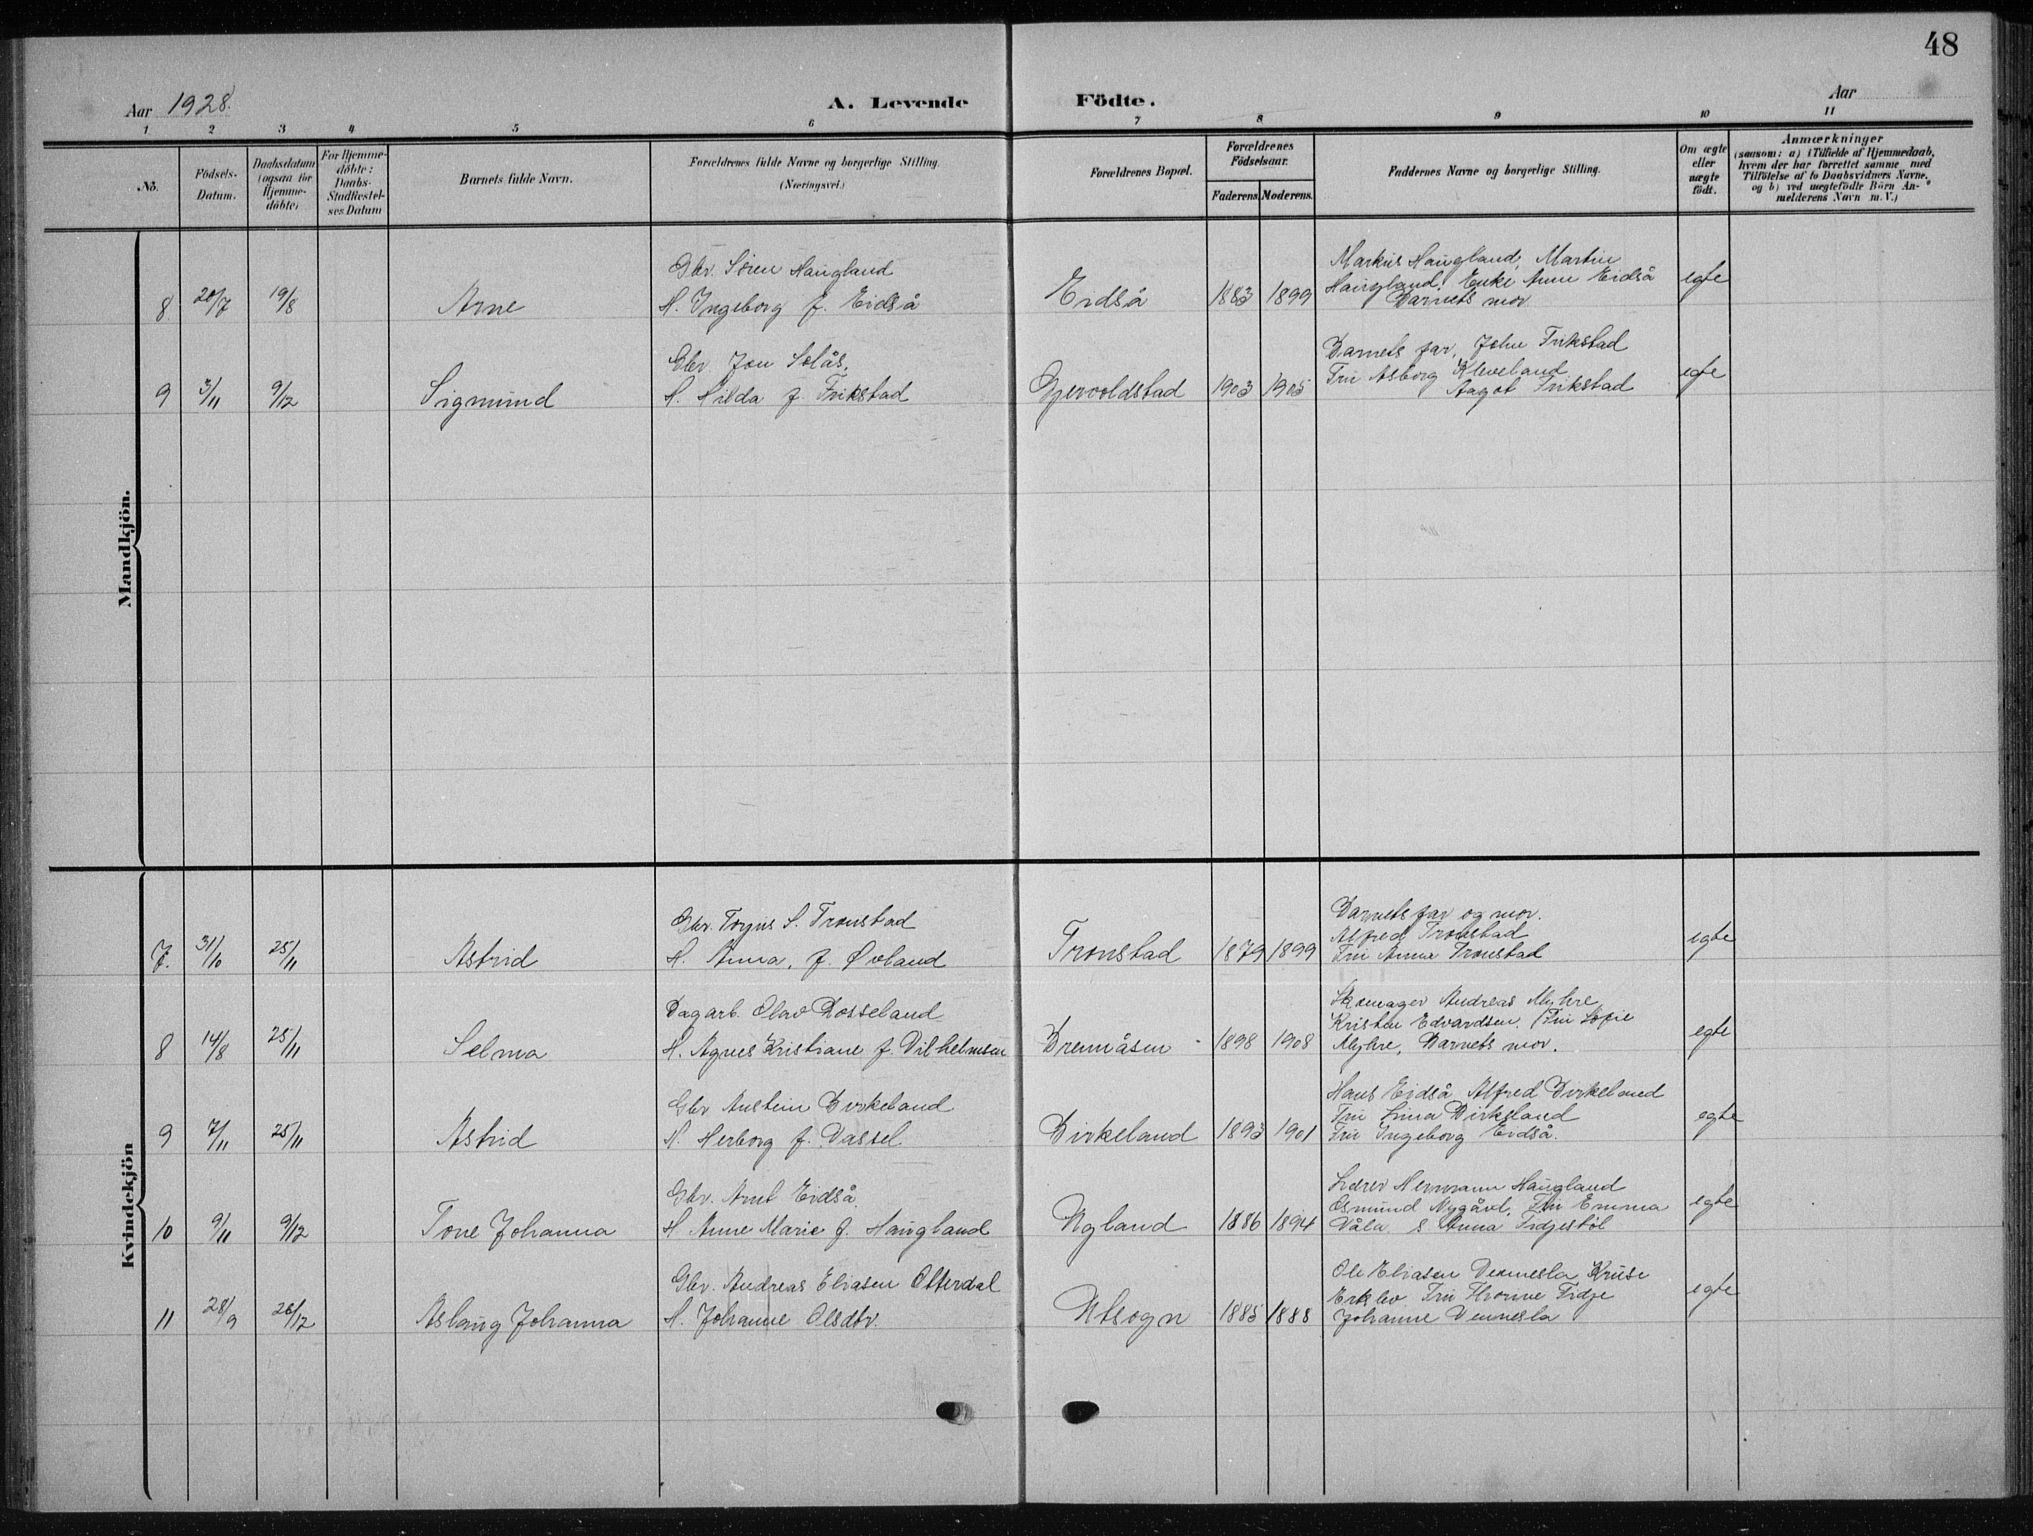 48
Aar 1928.
A. Levende Födte.
Aar
1 2 3 4 5 6 7 8 9 10 11
No.
Födsels-Datum.
Daabsdatum (ogsaa for Hjemme-döbte)
For Hjemme-döbte: Daabs-Stadfæstel-ses Datum
Barnets fulde Navn.
Forældrenes fulde Navne og borgerlige Stilling. (Næringsvei.)
Forældrenes Bopæl.
Forældrenes Födselsaar.
Faderens. Moderens.
Faddernes Navne og borgerlige Stilling.
Om ægte eller uægte födt.
Anmærkninger
(saasom: a) i Tilfælde af Hjemmedaab,
hvem der har forrettet samme, med
Tilföielse af to Daabsvidners Navne,
og b) ved uægtefödte Börn An-
melderens Navn m. V.)
Mandkjön.
Gbr. Sören Haugland
Markus Haugland, Martin
Haugland, Enke Anne Eidså
8 20/7 19/8 Arne H. Ingeborg f. Eidså Eidså 1883 1899 Barnets mor egte
Gbr Jon Solås,
Barnets far, John Frikstad
Fru Asborg Kleveland
9 3/11 9/12 Sigmund H. Hilda f. Frikstad Gjervoldstad 1903 1905 Aagot Frikstad egte
Kvindekjön
Gbr. Torjus S. Tronstad
Barnets far og mor.
Alfred Tronstad
7. 31/10 25/11 Astrid H. Anna, f. Øvland Tronstad 1879 1899 Fru Anna Tronstad egte
Dagarb. Olav Dosseland
Skomager Andreas Myhre
Kristen Edvardsen, Fru Sofie
8 14/8 25/11 Selma H. Agnes Kristiane f. Vilhelmsen Drenmåsen 1898 1908 Myhre, Barnets mor. egte
Gbr Austein Birkeland
Hans Eidså, Alfred Birkeland
Fru Lina Birkeland
9 7/11 25/11 Astrid H. Herborg f. Vassel Birkeland 1893 1901 Fru Ingeborg Eidså. egte
Gbr. Arnt Eidså
Lærer Hermann Haugland
Osmund Nygård, Fru Emma
10 9/11 9/12 Tone Johanna H Anne Marie f. Haugland Ugland 1886 1894 Anna Fidgestöl egte
Gbr. Andreas Eliasen Otterdal
Ole Eliasen Vennesla Kruse
Fru Fidje
11 28/9 26/12 Aslaug Johanna H. Johanne Olsdtr. Utsogn 1885 1888 Johanne Vennesla egte